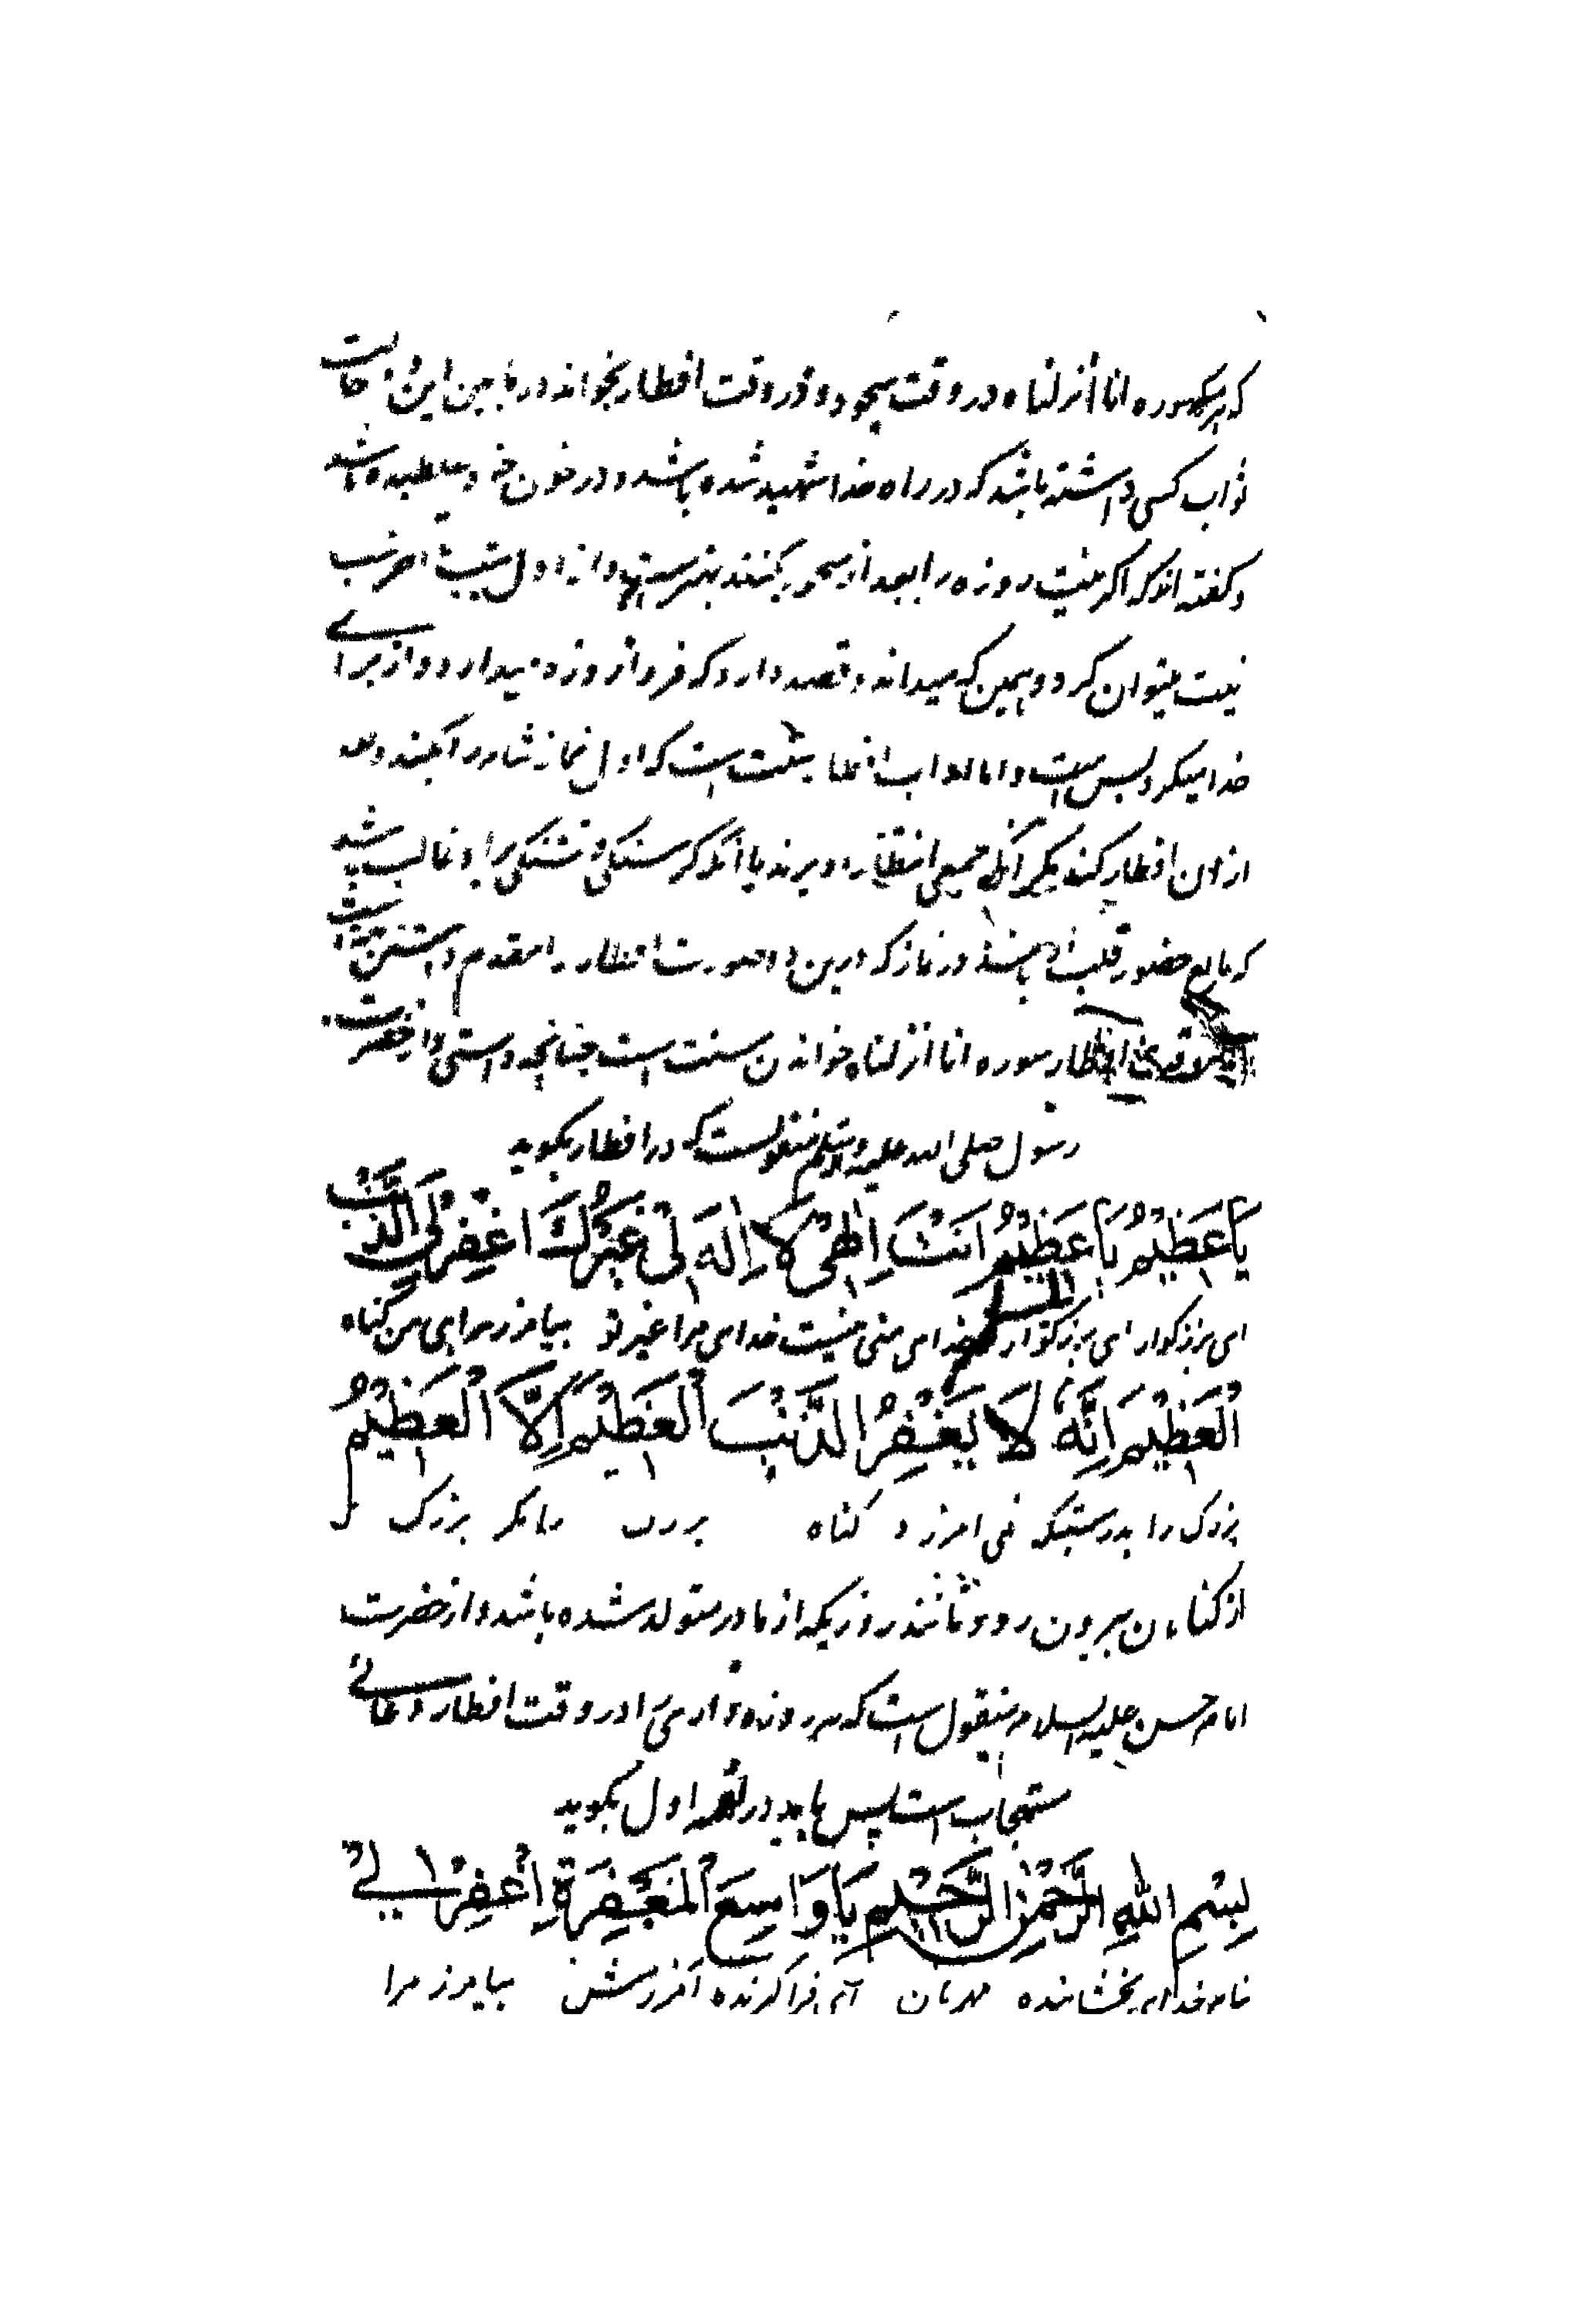 که هر که سوره انا انزلناه در وقت سحور و در وقت افطار بخواند در مابین این دو حالت
ثواب کسی داشته باشد که در راه خدا شهید شده باشد و در خون خود غلطیده باشد
و گفته اند که اگر نیت روزه را بعد از سحور بکنند بهتر است و از اول شب تا آخر شب
نیت میتوان کرد و همین که میداند و قصد دارد که فردا روزه میدارد و از برای
خدا میگیرد بس است و اما آداب افطار سنت است که اول نماز شام را بکند و بعد
از ان افطار کند مگر آنکه جمعی انتظار او برند یا آنکه گرسنگی و تشنگی برو غالب باشد
که مانع حضور قلب او باشد در نماز که درین دو صورت افطار را مقدم داشتن سنت است
افطار سوره انا انزلناه خواندن سنت است چنانچه دانستی و از حضرت
رسول صلی الله علیه و آله وسلم منقولست که در افطار بگوید
يَا عَظِيْمُ يَا عَظِيْمُ اَنْتَ اِلٰهِيْ لَا اِلٰهَ لِيْ غَيْرُكَ اغْفِرْ لِيَ الذَّنْبَ
ای بزرگوار ای بزرگوار خدای منی نیست خدای مرا غیر تو بیامرز برای من گناه
الْعَظِيْمَ اِنَّهٗ لَا يَغْفِرُ الذَّنْبَ الْعَظِيْمَ اِلَّا الْعَظِيْمُ
بزرگ را بدرستیکه نمی امرزد گناه بزرگ را مگر بزرگ
از گناهان بیرون رود مانند روزیکه از مادر متولد شده باشد و از حضرت
امام حسن علیه السلام منقول است که هر روزه داری را در وقت افطار دعائی
مستجاب است پس باید در لقمه اول بگوید
بِسْمِ اللهِ الرَّحْمٰنِ الرَّحِيْمِ يَا وَاسِعَ الْمَغْفِرَةِ اغْفِرْ لِيْ
نام خدای بخشاینده مهربان ای فراگیرنده آمرزش بیامرز مرا